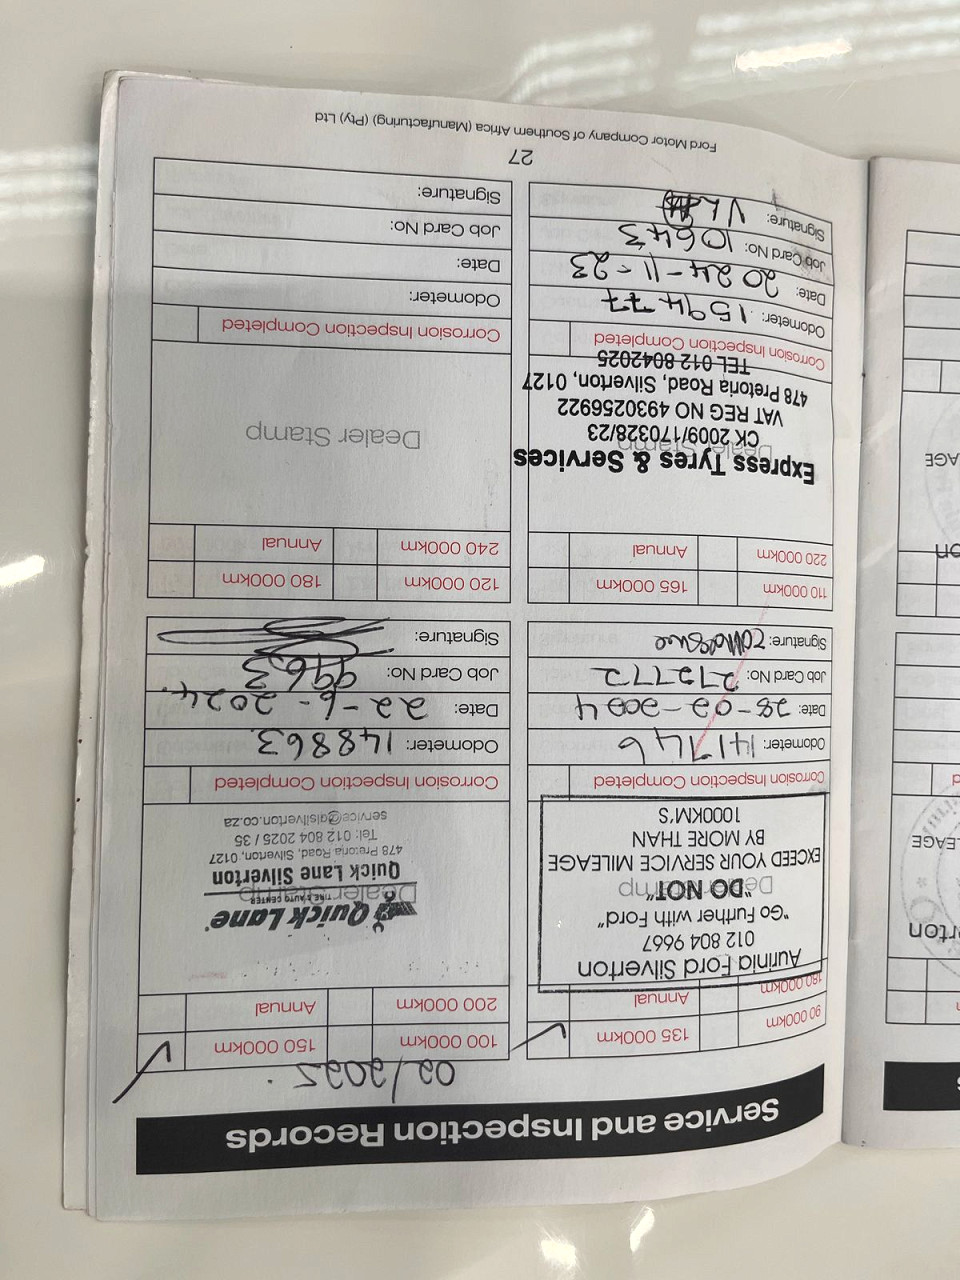 Service and Inspection Records
90 000km 135 000km ✓
180 000km Annual
Aurinia Ford Silverton
012 804 9667
"Go Further with Ford"
Dealer Stamp
"DO NOT"
EXCEED YOUR SERVICE MILEAGE
BY MORE THAN
1000KM'S
Corrosion Inspection Completed
Odometer: 141746
Date: 28-02-2024
Job Card No: 272772
Signature:
02/2025.
100 000km 150 000km ✓
200 000km Annual
Quick Lane
TIRE & AUTO CENTER
Dealer Stamp
Quick Lane Silverton
478 Pretoria Road, Silverton, 0127
Tel: 012 804 2025 / 35
service@qlsilverton.co.za
Corrosion Inspection Completed
Odometer: 148863
Date: 22-6-2024.
Job Card No: 9963
Signature:
110 000km 165 000km
220 000km Annual
Express Tyres & Services
Dealer Stamp
CK 2009/170328/23
VAT REG NO 4930256922
478 Pretoria Road, Silverton, 0127
TEL 012 8042025
Corrosion Inspection Completed
Odometer: 159477
Date: 2024-11-23
Job Card No: 10643
Signature:
120 000km 180 000km
240 000km Annual
Dealer Stamp
Corrosion Inspection Completed
Odometer:
Date:
Job Card No:
Signature:
27
Ford Motor Company of Southern Africa (Manufacturing) (Pty) Ltd